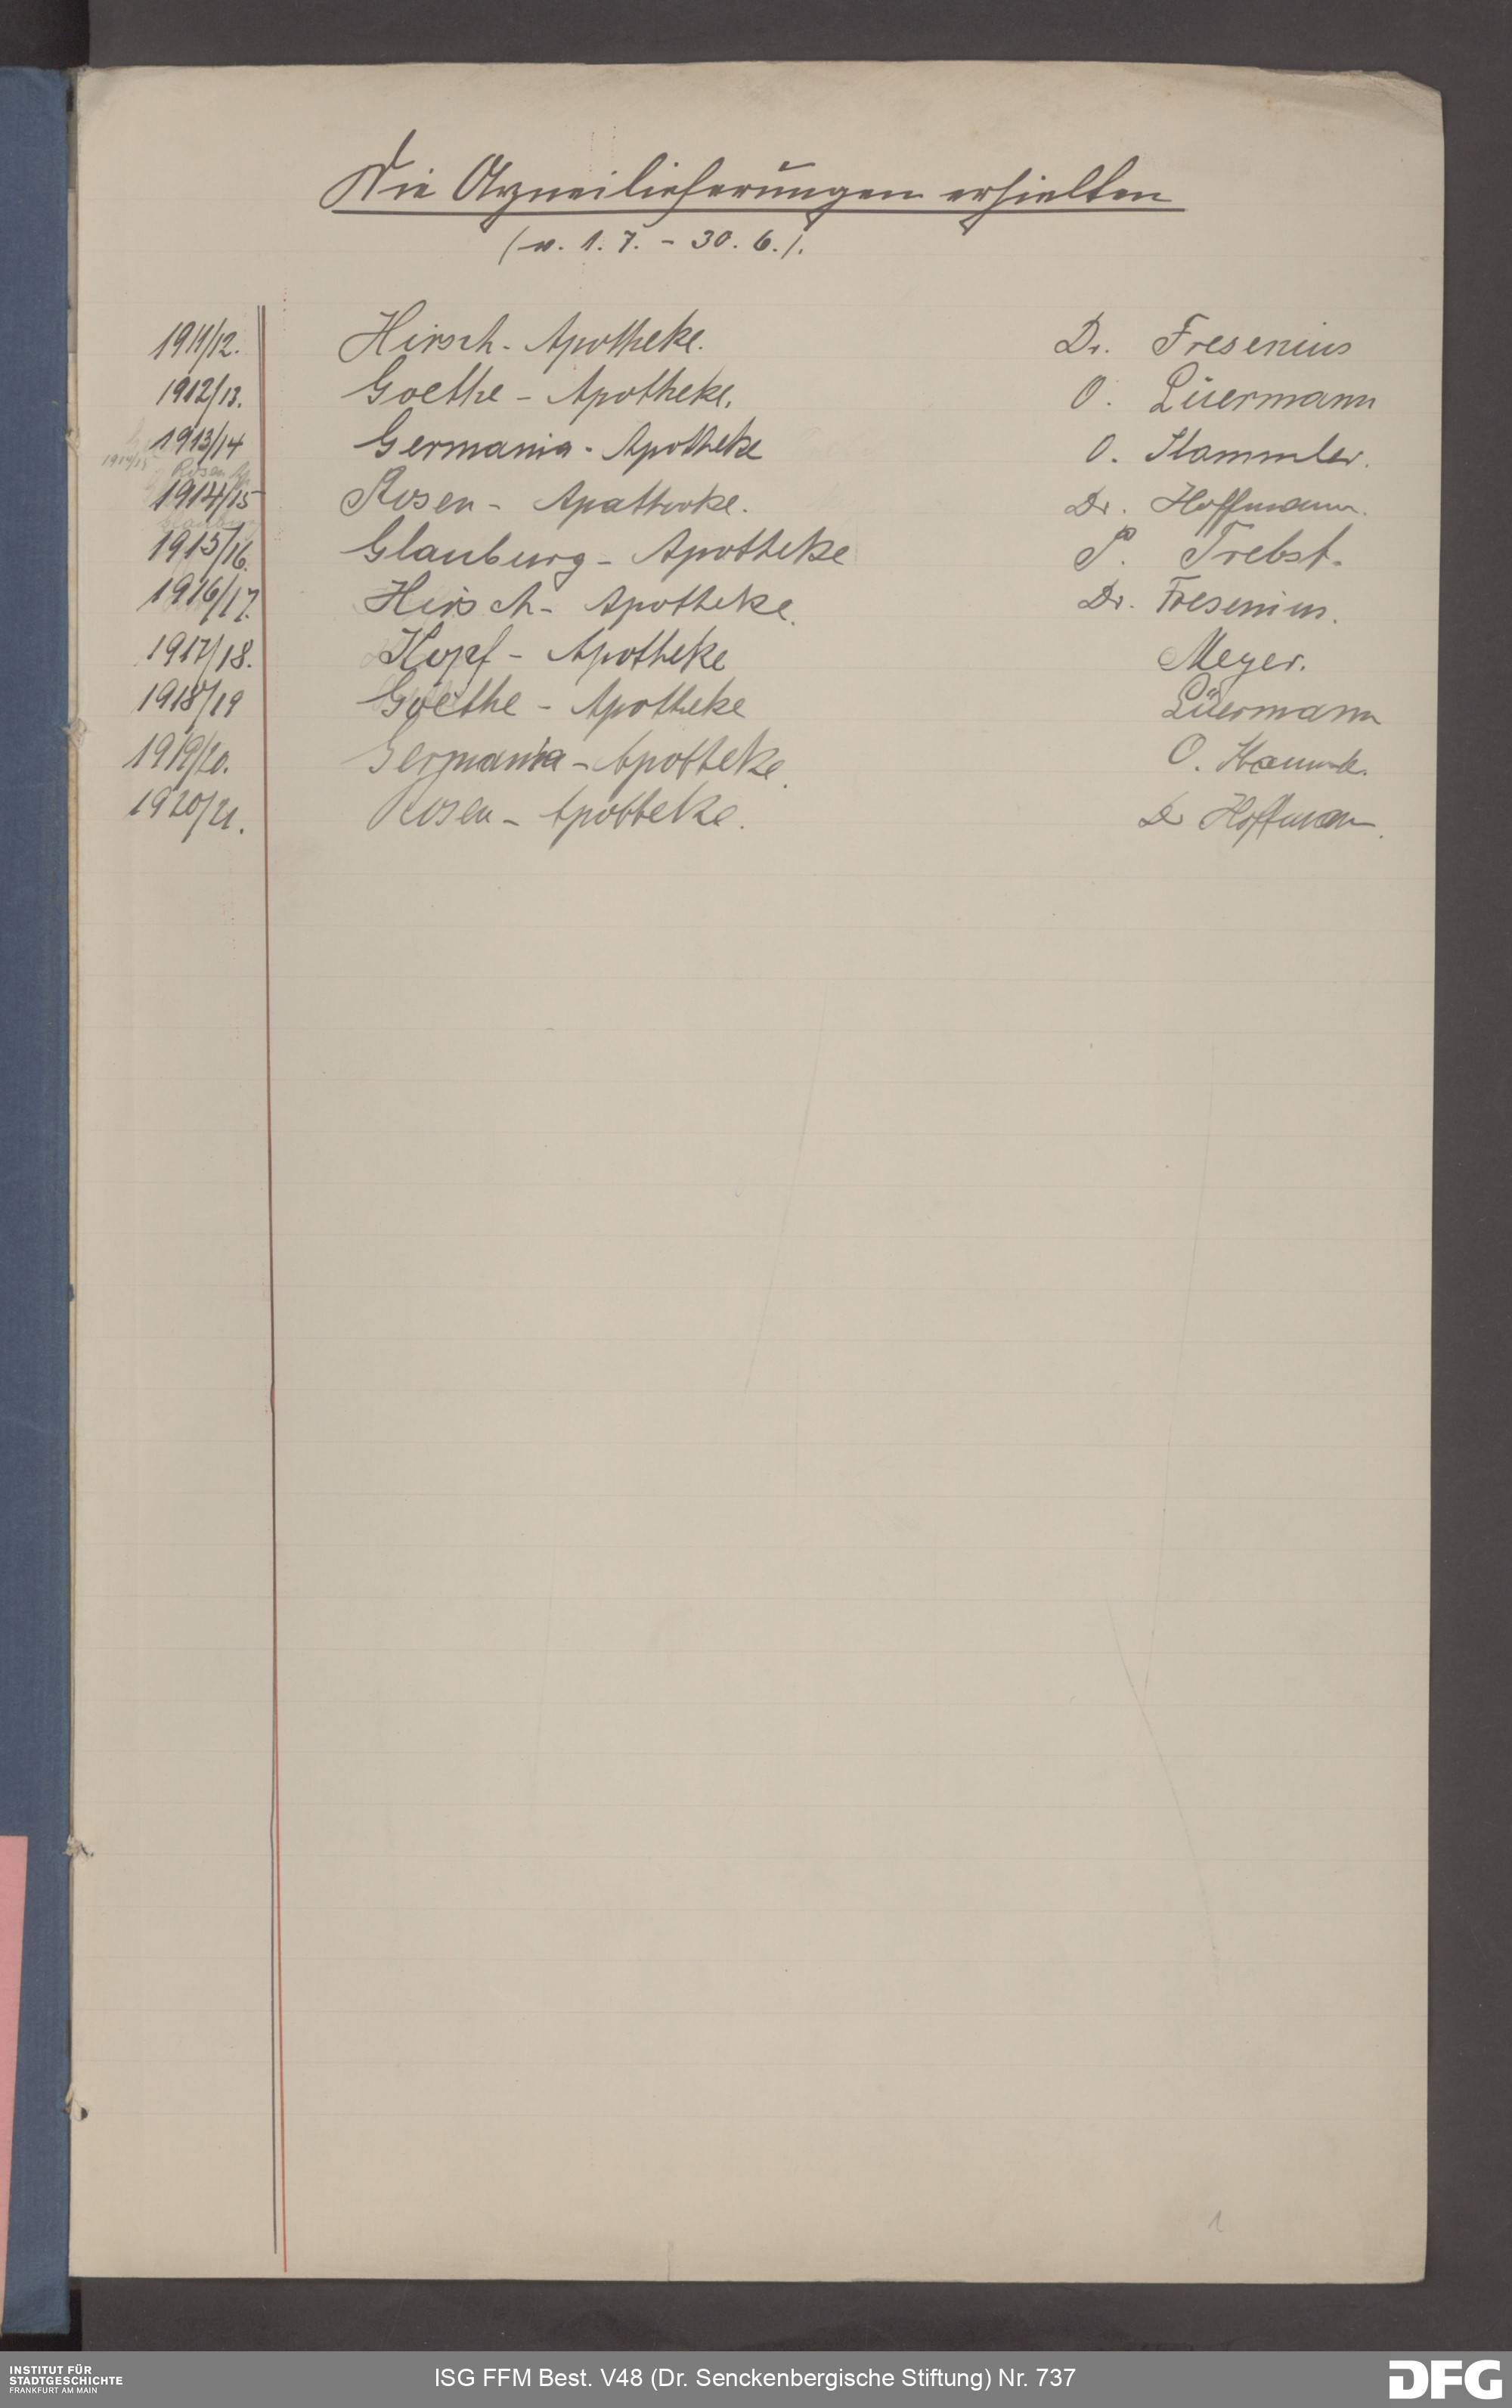 Die Arzneilieferungen erhielten
(v. 1. 7. - 30. 6.).
1911/12. Hirsch - Apotheke. Dr. Fresenius
1912/13. Goethe - Apotheke. O. Lüermann
1913/14 Germania - Apotheke O. Stammler.
1914/15 Rosen Ap
1914/15 Rosen - Apotheke. Dr. Hoffmann.
1915/16. Glauburg - Apotheke P. Trebst.
1916/17. Hirsch - Apotheke. Dr. Fresenius.
1917/18. Kopf - Apotheke Meyer.
1918/19 Goethe - Apotheke Lüermann
1919/20. Germania - Apotheke. O.
1920/21. Rosen - Apotheke. Dr Hoffmann.
1
INSTITUT FÜR
STADTGESCHICHTE
FRANKFURT AM MAIN
ISG FFM Best. V48 (Dr. Senckenbergische Stiftung) Nr. 737
DFG